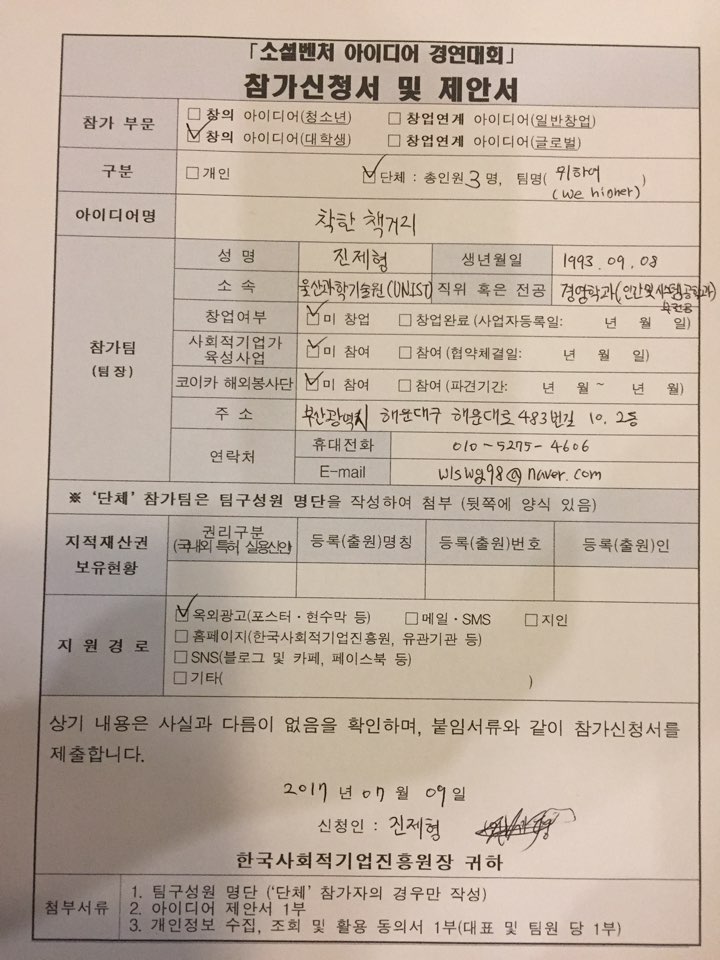 「소셜벤처 아이디어 경연대회」
참가신청서 및 제안서
참가 부문 □ 창의 아이디어(청소년) □ 창업연계 아이디어(일반창업)
☑ 창의 아이디어(대학생) □ 창업연계 아이디어(글로벌)
구분 □ 개인 ☑ 단체 : 총인원 3 명, 팀명( 위하여 (we higher) )
아이디어명 착한 책거리
참가팀 (팀장)
성 명 진제형 생년월일 1993. 09. 08
소 속 울산과학기술원(UNIST) 직위 혹은 전공 경영학과(인간및시스템공학과)
창업여부 ☑ 미 창업 □ 창업완료 (사업자등록일: 년 월 일)
사회적기업가 육성사업 ☑ 미 참여 □ 참여 (협약체결일: 년 월 일)
코이카 해외봉사단 ☑ 미 참여 □ 참여 (파견기간: 년 월 ~ 년 월)
주 소 부산광역시 해운대구 해운대로 483번길 10. 2층
연락처 휴대전화 010-5275-4606
E-mail wlswg98@naver.com
※ '단체' 참가팀은 팀구성원 명단을 작성하여 첨부 (뒷쪽에 양식 있음)
지적재산권 보유현황
권리구분 (국내외 특허, 실용신안) 등록(출원)명칭 등록(출원)번호 등록(출원)인
지 원 경 로
☑ 옥외광고(포스터·현수막 등) □ 메일·SMS □ 지인
□ 홈페이지(한국사회적기업진흥원, 유관기관 등)
□ SNS(블로그 및 카페, 페이스북 등)
□ 기타( )
상기 내용은 사실과 다름이 없음을 확인하며, 붙임서류와 같이 참가신청서를
제출합니다.
2017 년 07 월 09 일
신청인 : 진제형
한국사회적기업진흥원장 귀하
첨부서류
1. 팀구성원 명단 ('단체' 참가자의 경우만 작성)
2. 아이디어 제안서 1부
3. 개인정보 수집, 조회 및 활용 동의서 1부(대표 및 팀원 당 1부)